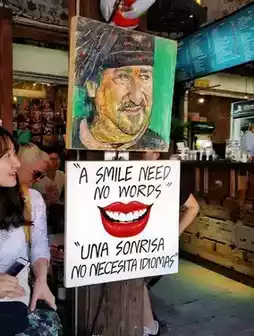 "A SMILE NEED
NO WORDS"
"UNA SONRISA
NO NECESITA IDIOMAS"